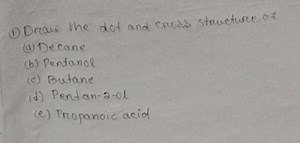 ① Draw the dot and cross structure of
(a) Decane
(b) Pentanol
(c) Butane
(d) Pentan-2-ol
(e) Propanoic acid